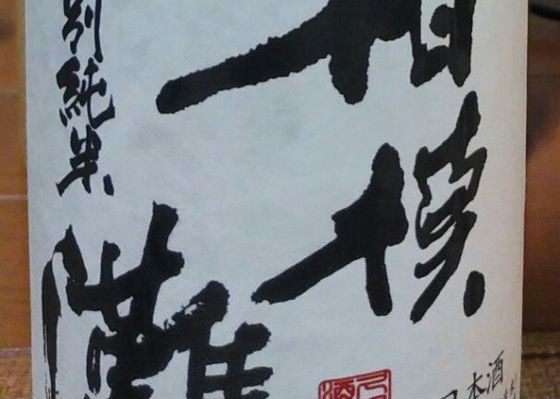 相模
灘
別純米
日本酒